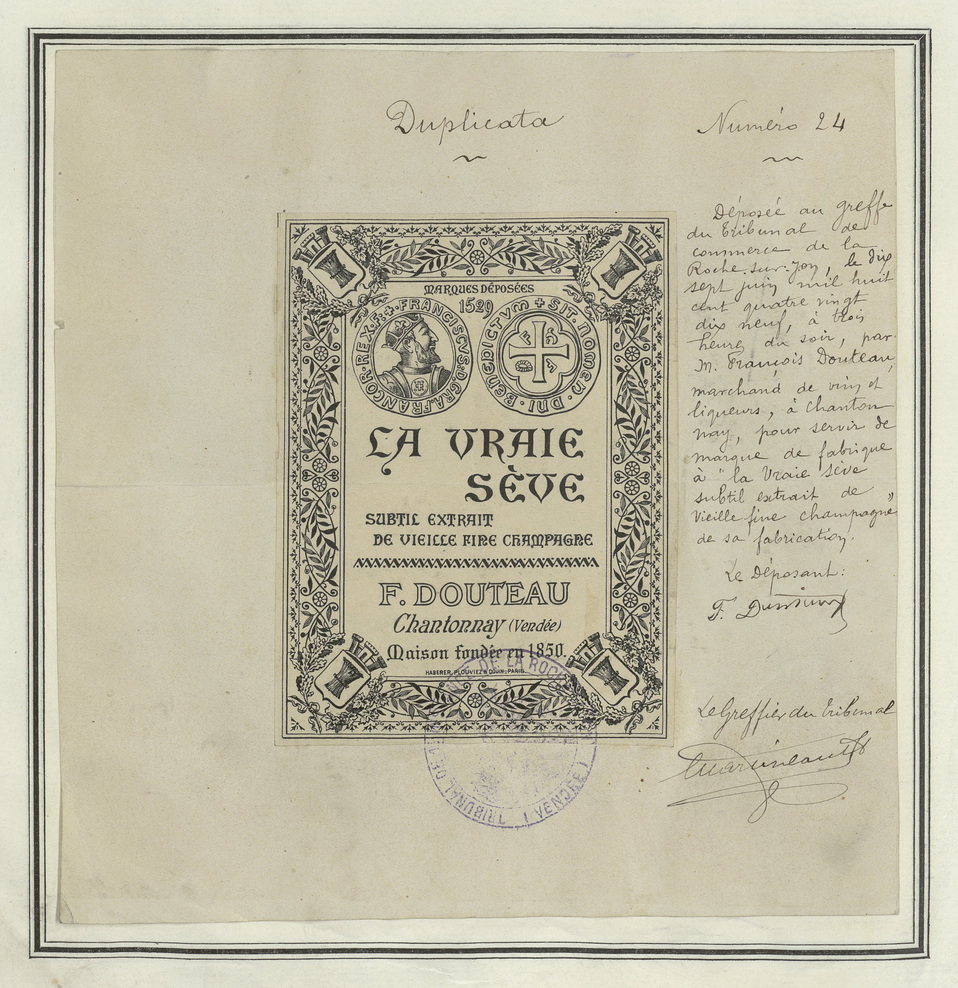 Duplicata
Numéro 24
MARQUES DÉPOSÉES
1529
FRANCISCVS·D·GRA·FRANCOR·REX·
+ SIT · NOMEN · DNI · BENEDICTVM
LA VRAIE
SÈVE
SUBTIL EXTRAIT
DE VIEILLE FINE CHAMPAGNE
F. DOUTEAU
Chantonnay (Vendée)
Maison fondée en 1850.
HABERER, PLOUVIEZ & DOUIN, PARIS.
TRIBUNAL DE DE LA ROCHE (VENDÉE)
Déposée au greffe
du tribunal de
commerce de la
Roche-sur-Yon, le dix
sept juin mil huit
cent quatre vingt
dix neuf, à trois
heure du soir, par
M. François Douteau,
marchand de vins et
liqueurs, à Chanton
nay, pour servir de
marque de fabrique
à "la Vraie Sève
subtil extrait de
vieille fine champagne"
de sa fabrication.
Le Déposant:
F. Douteau
Le Greffier du tribunal